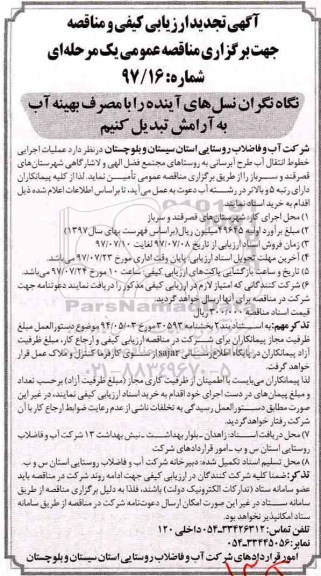 آگهی تجدید ارزیابی کیفی و مناقصه
جهت برگزاری مناقصه عمومی یک مرحله‌ای
شماره: ۹۷/۱۶
نگاه نگران نسل‌های آینده را با مصرف بهینه آب
به آرامش تبدیل کنیم
شرکت آب و فاضلاب روستایی استان سیستان و بلوچستان در نظر دارد عملیات اجرایی
خطوط انتقال آب طرح آبرسانی به روستاهای مجتمع فضل الهی و لاشار گاهی شهرستان‌های
قصرقند و سرباز را از طریق برگزاری مناقصه عمومی تأمین نماید. لذا از کلیه پیمانکاران
دارای رتبه ۵ و بالاتر در رشته آب دعوت به عمل می‌آید، تا براساس اطلاعات اعلام شده ذیل
اقدام به خرید اسناد نمایند.
۱) محل اجرای کار: شهرستان‌های قصرقند و سرباز
۲) مبلغ برآورد اولیه ۴۹۶۴۵ میلیون ریال (براساس فهرست بهای سال ۱۳۹۷)
۳) زمان فروش اسناد ارزیابی از تاریخ ۹۷/۰۷/۰۸ لغایت ۹۷/۰۷/۱۰
۴) آخرین مهلت تحویل اسناد ارزیابی: پایان وقت اداری مورخ ۹۷/۰۷/۲۳ می‌باشد.
۵) تاریخ و ساعت بازگشایی پاکت‌های ارزیابی کیفی: ساعت ۱۰ مورخ ۹۷/۰۷/۲۴ می‌باشد.
۶) شرکت کنندگانی که امتیاز لازم در ارزیابی کیفی مذکور را دریافت نمایند دعوتنامه جهت
شرکت در مناقصه برای آنها ارسال خواهد گردید.
قیمت اسناد مناقصه ۳۰۰/۰۰۰ ریال
تذکر مهم: به استناد بند ۲ بخشنامه ۳۰۵۹۳ مورخ ۹۴/۰۵/۰۳ موضوع دستورالعمل مبلغ
ظرفیت مجاز پیمانکاران برای شرکت در مناقصه ارزیابی کیفی و ارجاع کار، مبلغ ظرفیت
آزاد پیمانکاران در پایگاه اطلاع‌رسانی sajar از سوی کارفرما کنترل و ملاک عمل قرار
خواهد گرفت.
لذا پیمانکاران می‌بایست با اطمینان از ظرفیت کاری مجاز (مبلغ ظرفیت آزاد) برحسب تعداد
و مبلغ پیمان‌های در دست اجرای خود اقدام به خرید اسناد ارزیابی کیفی نمایند، در غیر این
صورت مطابق دستورالعمل رسیدگی به تخلفات ناشی از عدم رعایت ضوابط ارجاع کار با آن
شرکت رفتار خواهد گردید.
۷) محل دریافت اسناد: زاهدان ـ بلوار بهداشت ـ نبش بهداشت ۱۳ شرکت آب و فاضلاب
روستایی استان س و ب ـ امور قراردادهای شرکت
۸) محل تسلیم اسناد تکمیل شده: دبیرخانه شرکت آب و فاضلاب روستایی استان س و ب.
تذکر: ضمنا کلیه شرکت کنندگان در ارزیابی کیفی جهت ادامه روند شرکت در مناقصه باید
عضو سامانه ستاد (تدارکات الکترونیک دولت) باشند، فلذا به دلیل برگزاری مناقصه از طریق
سامانه ستاد در غیر این صورت امکان ارسال دعوتنامه شرکت در مناقصه از طریق سامانه
ستاد امکانپذیر نخواهد بود.
تلفن تماس: ۳۳۴۲۶۳۱۲-۰۵۴ داخلی ۱۲۰
نمابر: ۳۳۴۴۵۰۵۶-۰۵۴
امور قراردادهای شرکت آب و فاضلاب روستایی استان سیستان و بلوچستان
ParsNamadData
۰۲۱-۸۸۳۴۹۶۷۰-۵